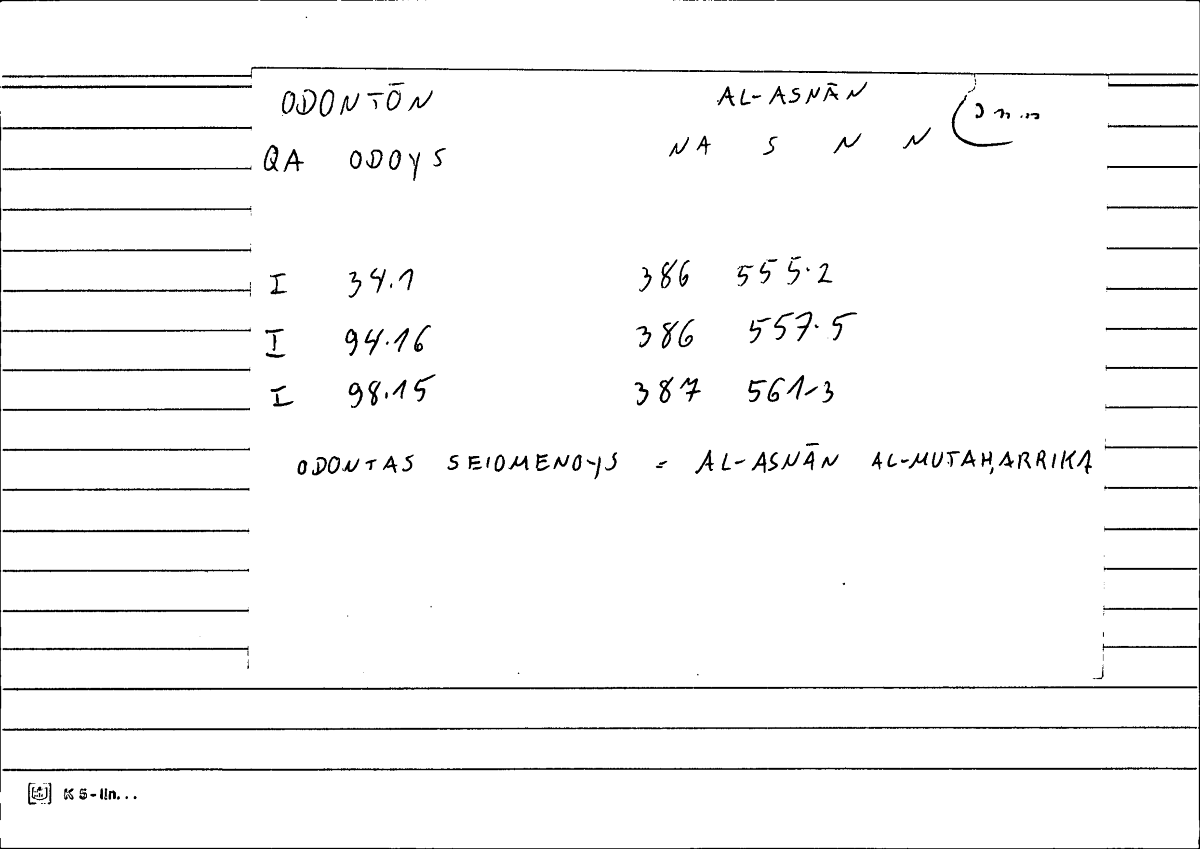 ODONTŌN AL-ASNĀN
QA ODOYS NA S N N
I 34.1 386 555.2
I 94.16 386 557.5
I 98.15 387 561-3
ODONTAS SEIOMENOYS = AL-ASNĀN AL-MUTAḤARRIKA
K 5-lin...